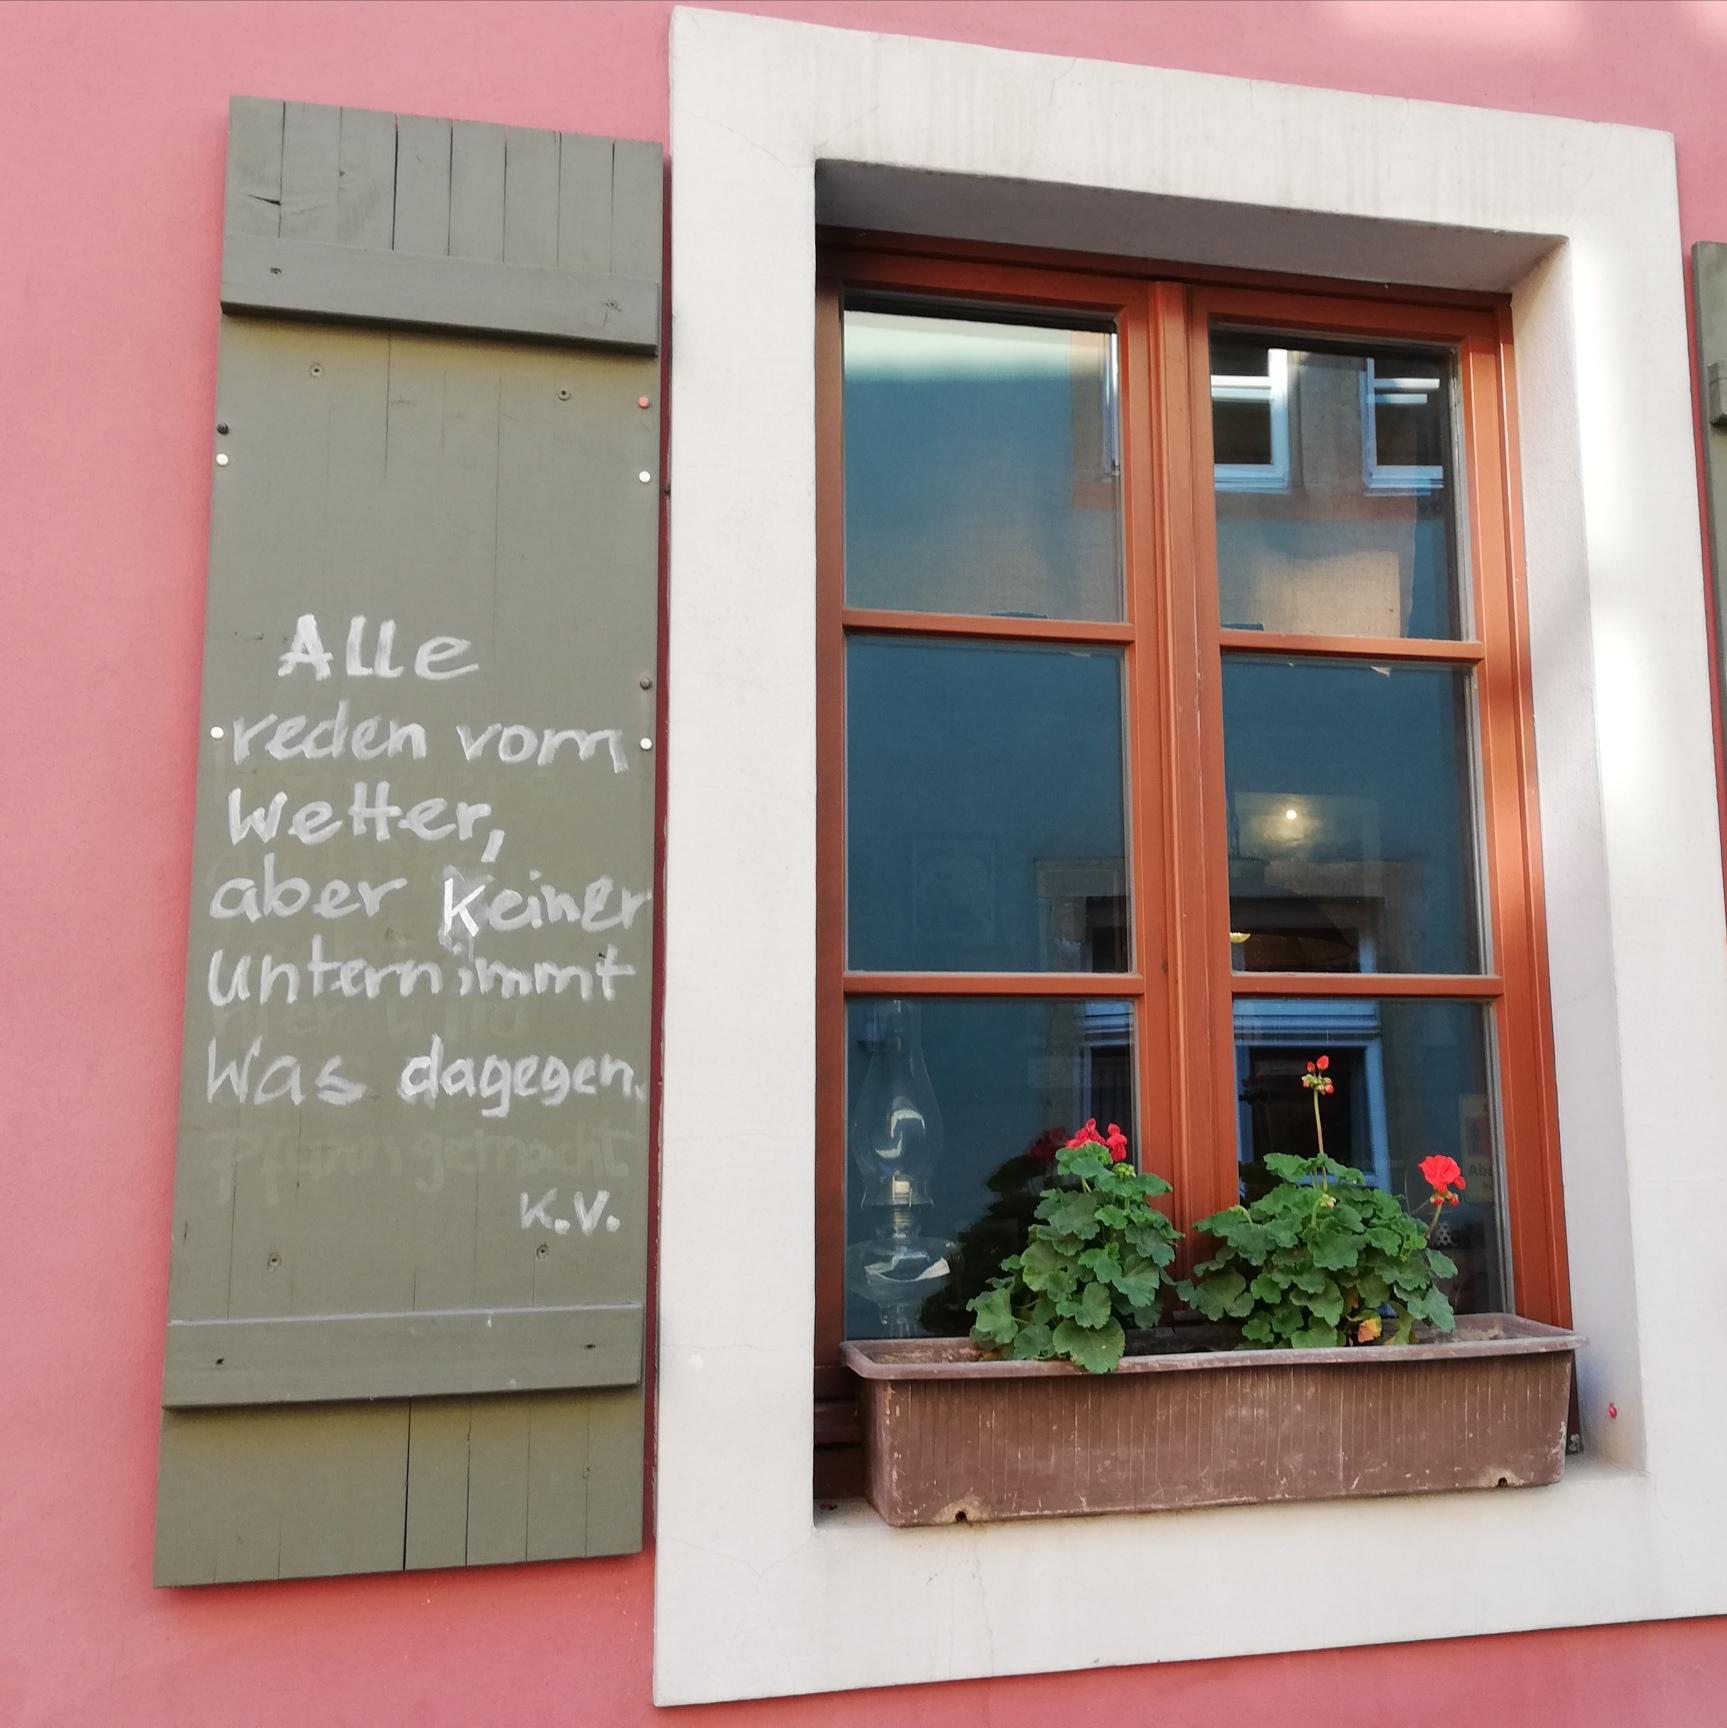 Alle
reden vom
Wetter,
aber Keiner
unternimmt
Was dagegen.
K.V.